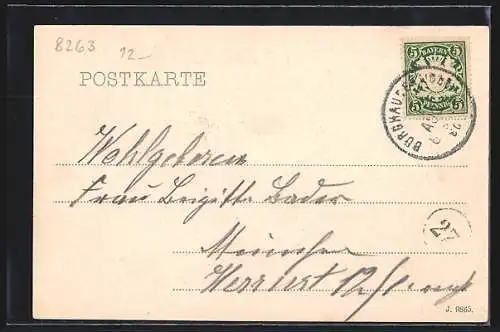 8263
12.–
POSTKARTE
5 BAYERN 5
5 PFENNIG 5
BURGHAUSEN
Wohlgeboren
Frau Brigitte Bader
München
12/I.
27
J. 0885.